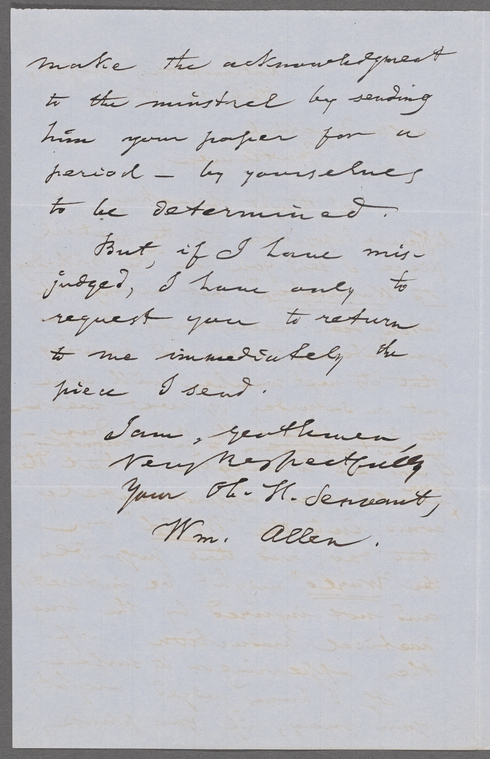 make the acknowledgment
to the minstrel by sending
him your paper for a
period — by yourselves
to be determined.
But, if I have mis-
judged, I have only to
request you to return
to me immediately the
piece I send.
I am, gentlemen,
Very Respectfully
Your Ob. H. Servant,
Wm. Allen.